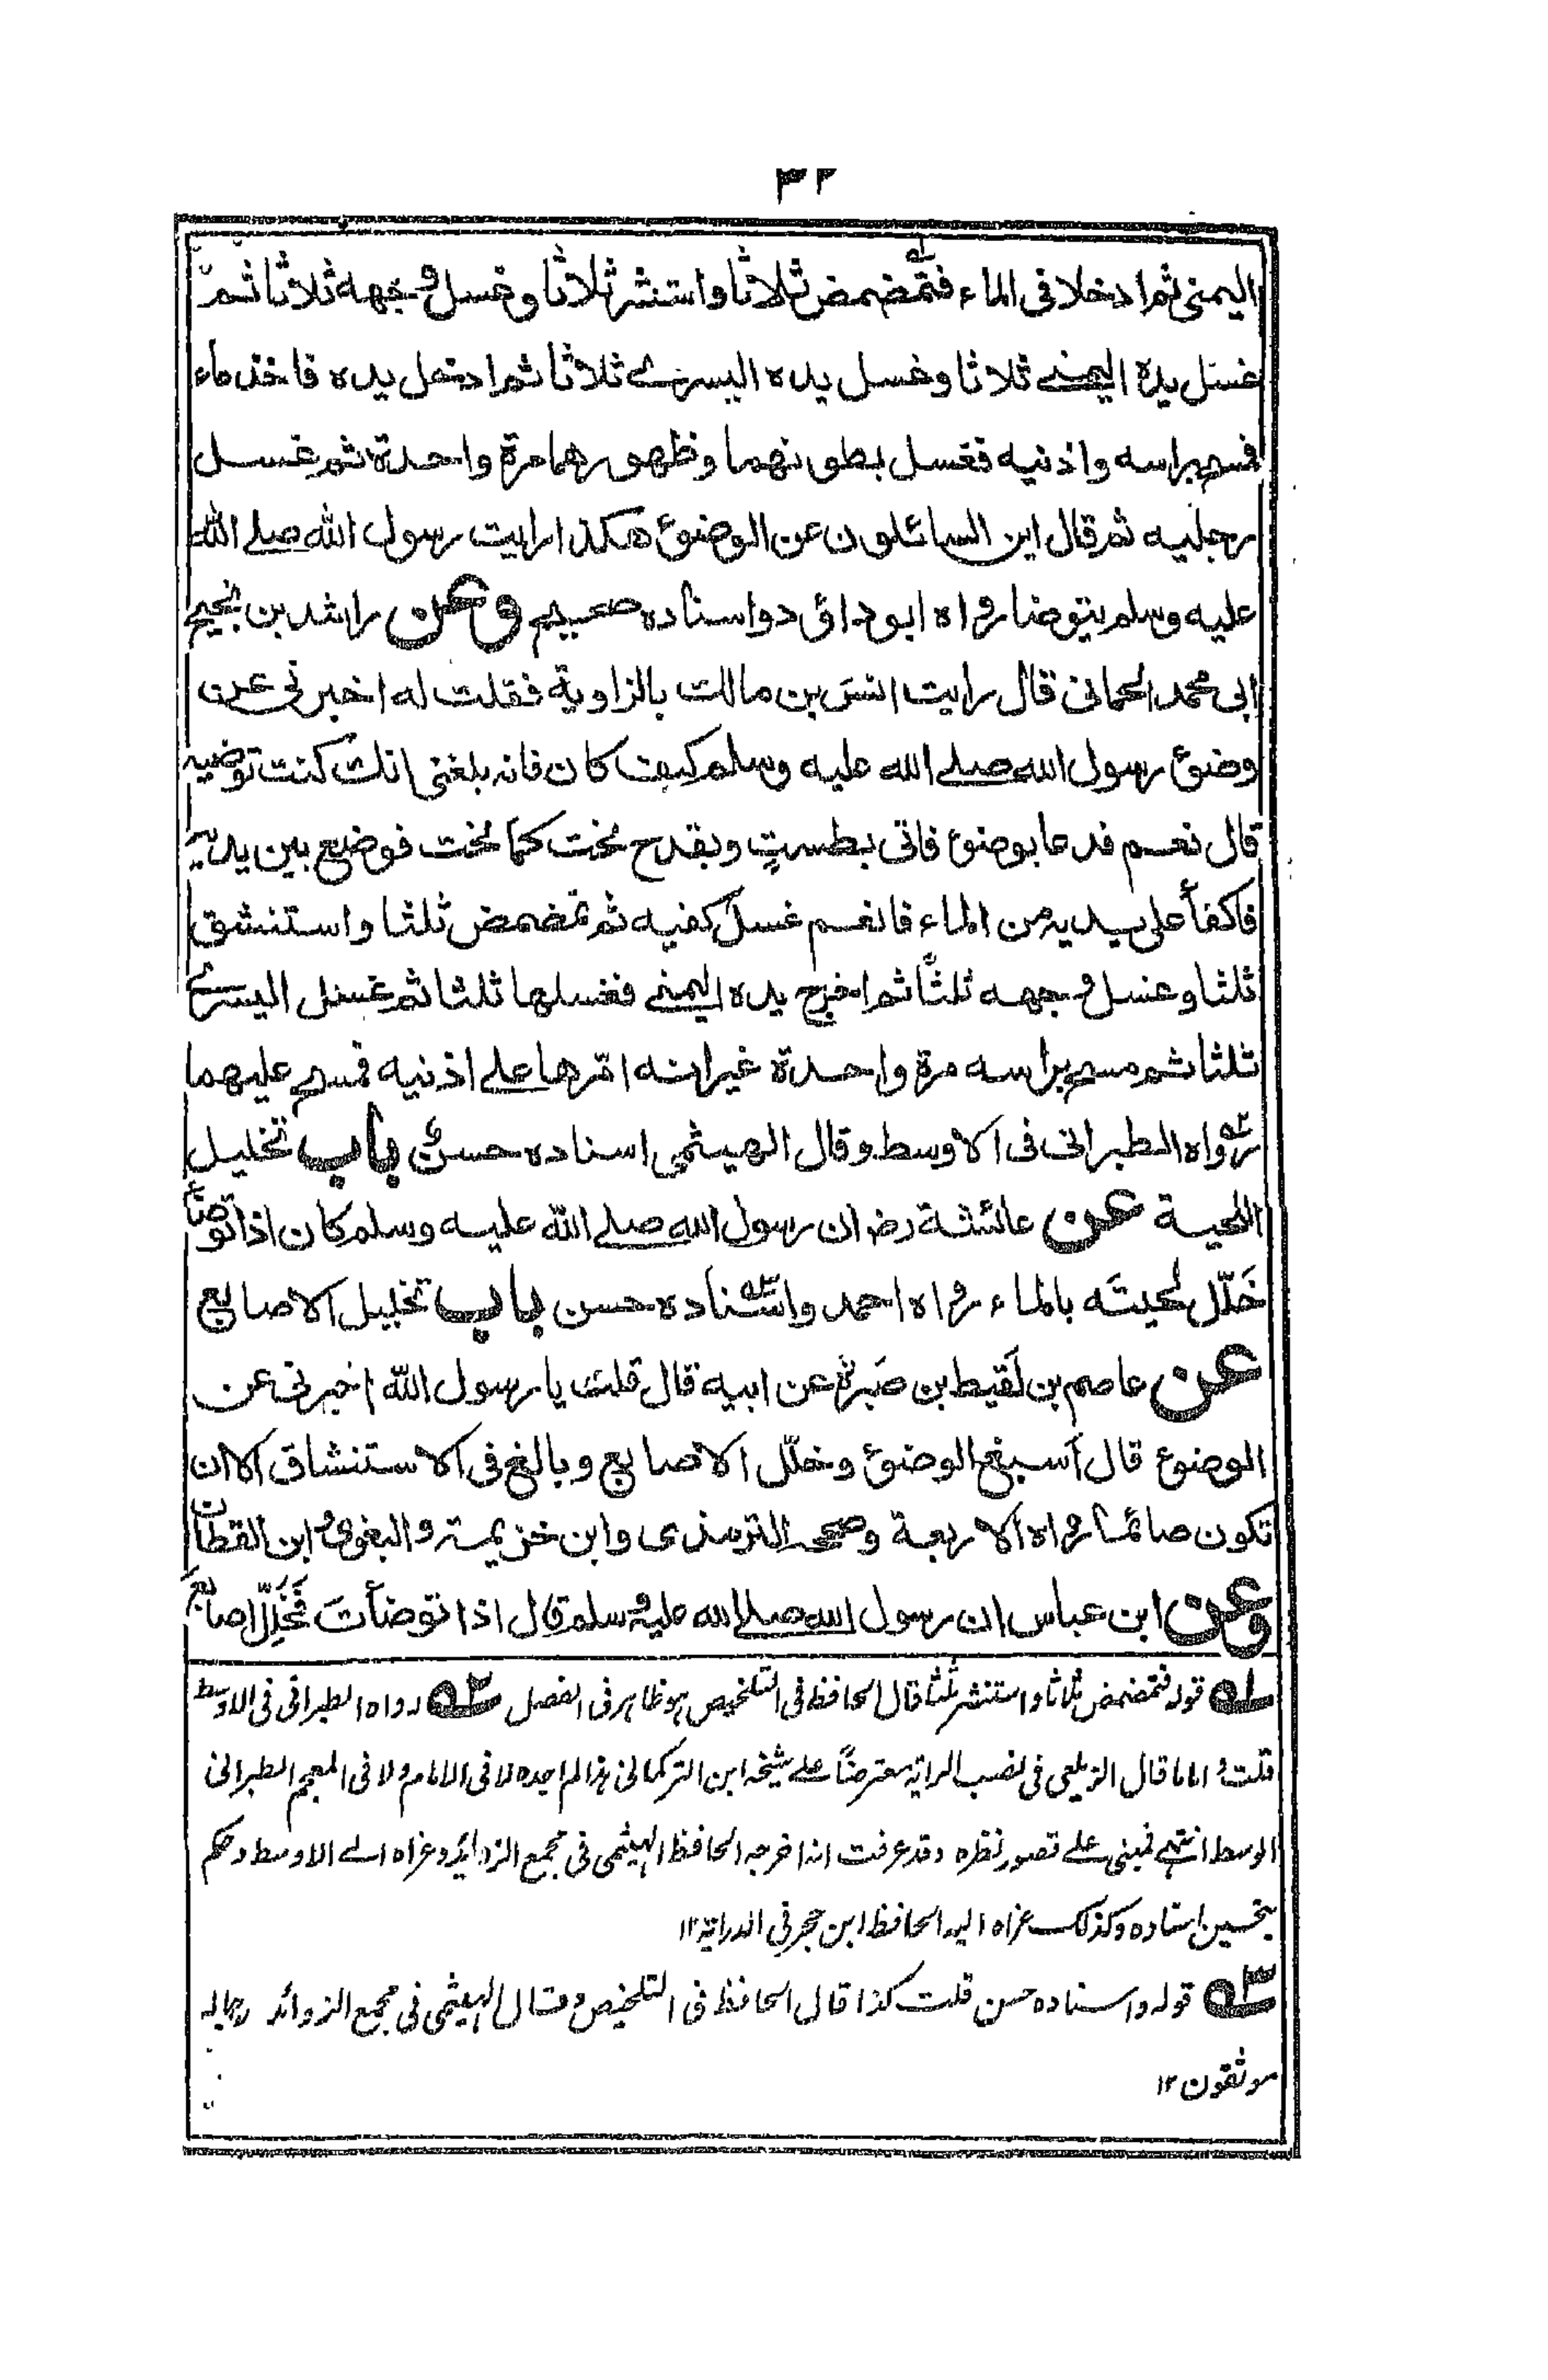 ٣٢
اليمنى ثم ادخلا فى الماء فتمضمض ثلاثا واستنثر ثلاثا وغسل وجهه ثلاثا ثمّ
غسل يده اليمنے ثلاثا وغسل يده اليسرے ثلاثا ثم ادخل يده فاخذ ماء
فمسح براسه واذنيه فغسل بطونهما وظهورهما مرة واحدة ثم غسل
رجليه ثم قال اين السائلون عن الوضوء هكذا رايت رسول الله صلے الله
عليه وسلم يتوضا رواه ابوداؤد واسناده صحيح وعن راشد بن نجيح
ابى محمد الحمانى قال رايت انس بن مالك بالزاوية فقلت له اخبرنى عن
وضوء رسول الله صلے الله عليه وسلم كيف كان فانه بلغنى انك كنت توضيه
قال نعم فدعا بوضوء فاتى بطستٍ وبقدح نخت كما نخت فوضع بين يديه
فاكفأ على يديه من الماء فانعم غسل كفيه ثم تمضمض ثلثا واستنشق
ثلثا وغسل وجهه ثلثًا ثم اخرج يده اليمنے فغسلها ثلثا ثم غسل اليسرے
ثلثا ثم مسح براسه مرة واحدة غير انه امّرها علے اذنيه فمسح عليهما
رواه٢ الطبرانى فى الاوسط وقال الهيثمى اسناده حسن باب تخليل
اللحية عن عائشة رض ان رسول الله صلے الله عليه وسلم كان اذا توضأ
خَلّل لحيتَه بالماء رواه احمد واسناده٣ حسن باب تخليل الاصابع
عن عاصم بن لَقيط بن صَبِرة عن ابيه قال قلت يا رسول الله اخبرنى عن
الوضوء قال اَسبغ الوضوء وخلّل الاصابع وبالغ فى الاستنشاق الا ان
تكون صائما رواه الاربعة وصححه الترمذى وابن خزيمة والبغوى وابن القطان
وعن ابن عباس ان رسول الله صلے الله عليه وسلم قال اذا توضأتَ فَخَلِّل اصابع
١ قوله فتمضمض ثلاثا واستنثر ثلثا قال الحافظ فى التلخيص هو ظاهر فى الفصل ٢ رواه الطبرانى فى الاوسط
قلت و اما ما قال الزيلعى فى نصب الراية معترضًا علے شيخه ابن التركمانى هذا لم اجده لا فى الامام ولا فى المعجم الطبرانى
الوسط انتهے فمبنى علے قصور نظره وقد عرفت انه اخرجه الحافظ الهيثمى فى مجمع الزوائد وعزاه الے الاوسط وحكم
بتحسين اسناده وكذلك عزاه اليه الحافظ ابن حجر فى الدراية ١٢
٣ قوله واسناده حسن قلت كذا قال الحافظ فى التلخيص وقال الهيثمى فى مجمع الزوائد رجاله
موثقون ١٢